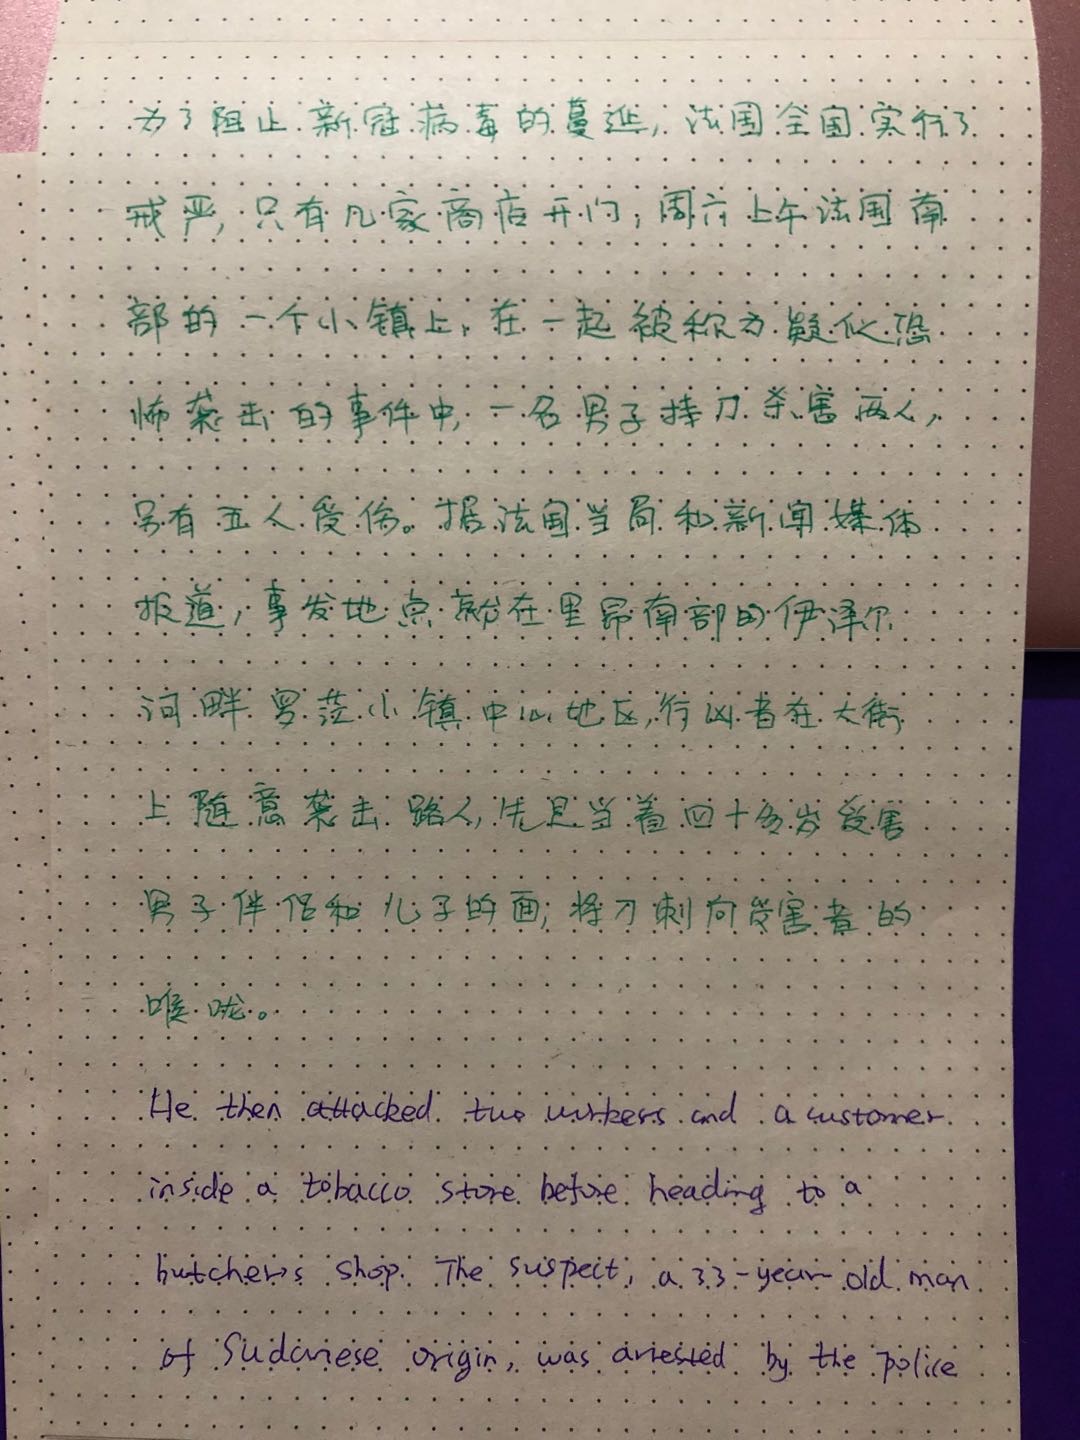 为了阻止新冠病毒的蔓延，法国全国实行了
戒严，只有几家商店开门，周六上午法国南
部的一个小镇上，在一起被称为疑似恐
怖袭击的事件中，一名男子持刀杀害两人，
另有五人受伤。据法国当局和新闻媒体
报道，事发地点就在里昂南部的伊泽尔
河畔罗芒小镇中心地区，行凶者在大街
上随意袭击路人，先是当着四十多岁受害
男子伴侣和儿子的面，将刀刺向受害者的
喉咙。
He then attacked two workers and a customer
inside a tobacco store before heading to a
butchers shop. The suspect, a 33-year-old man
of Sudanese origin, was arrested by the police